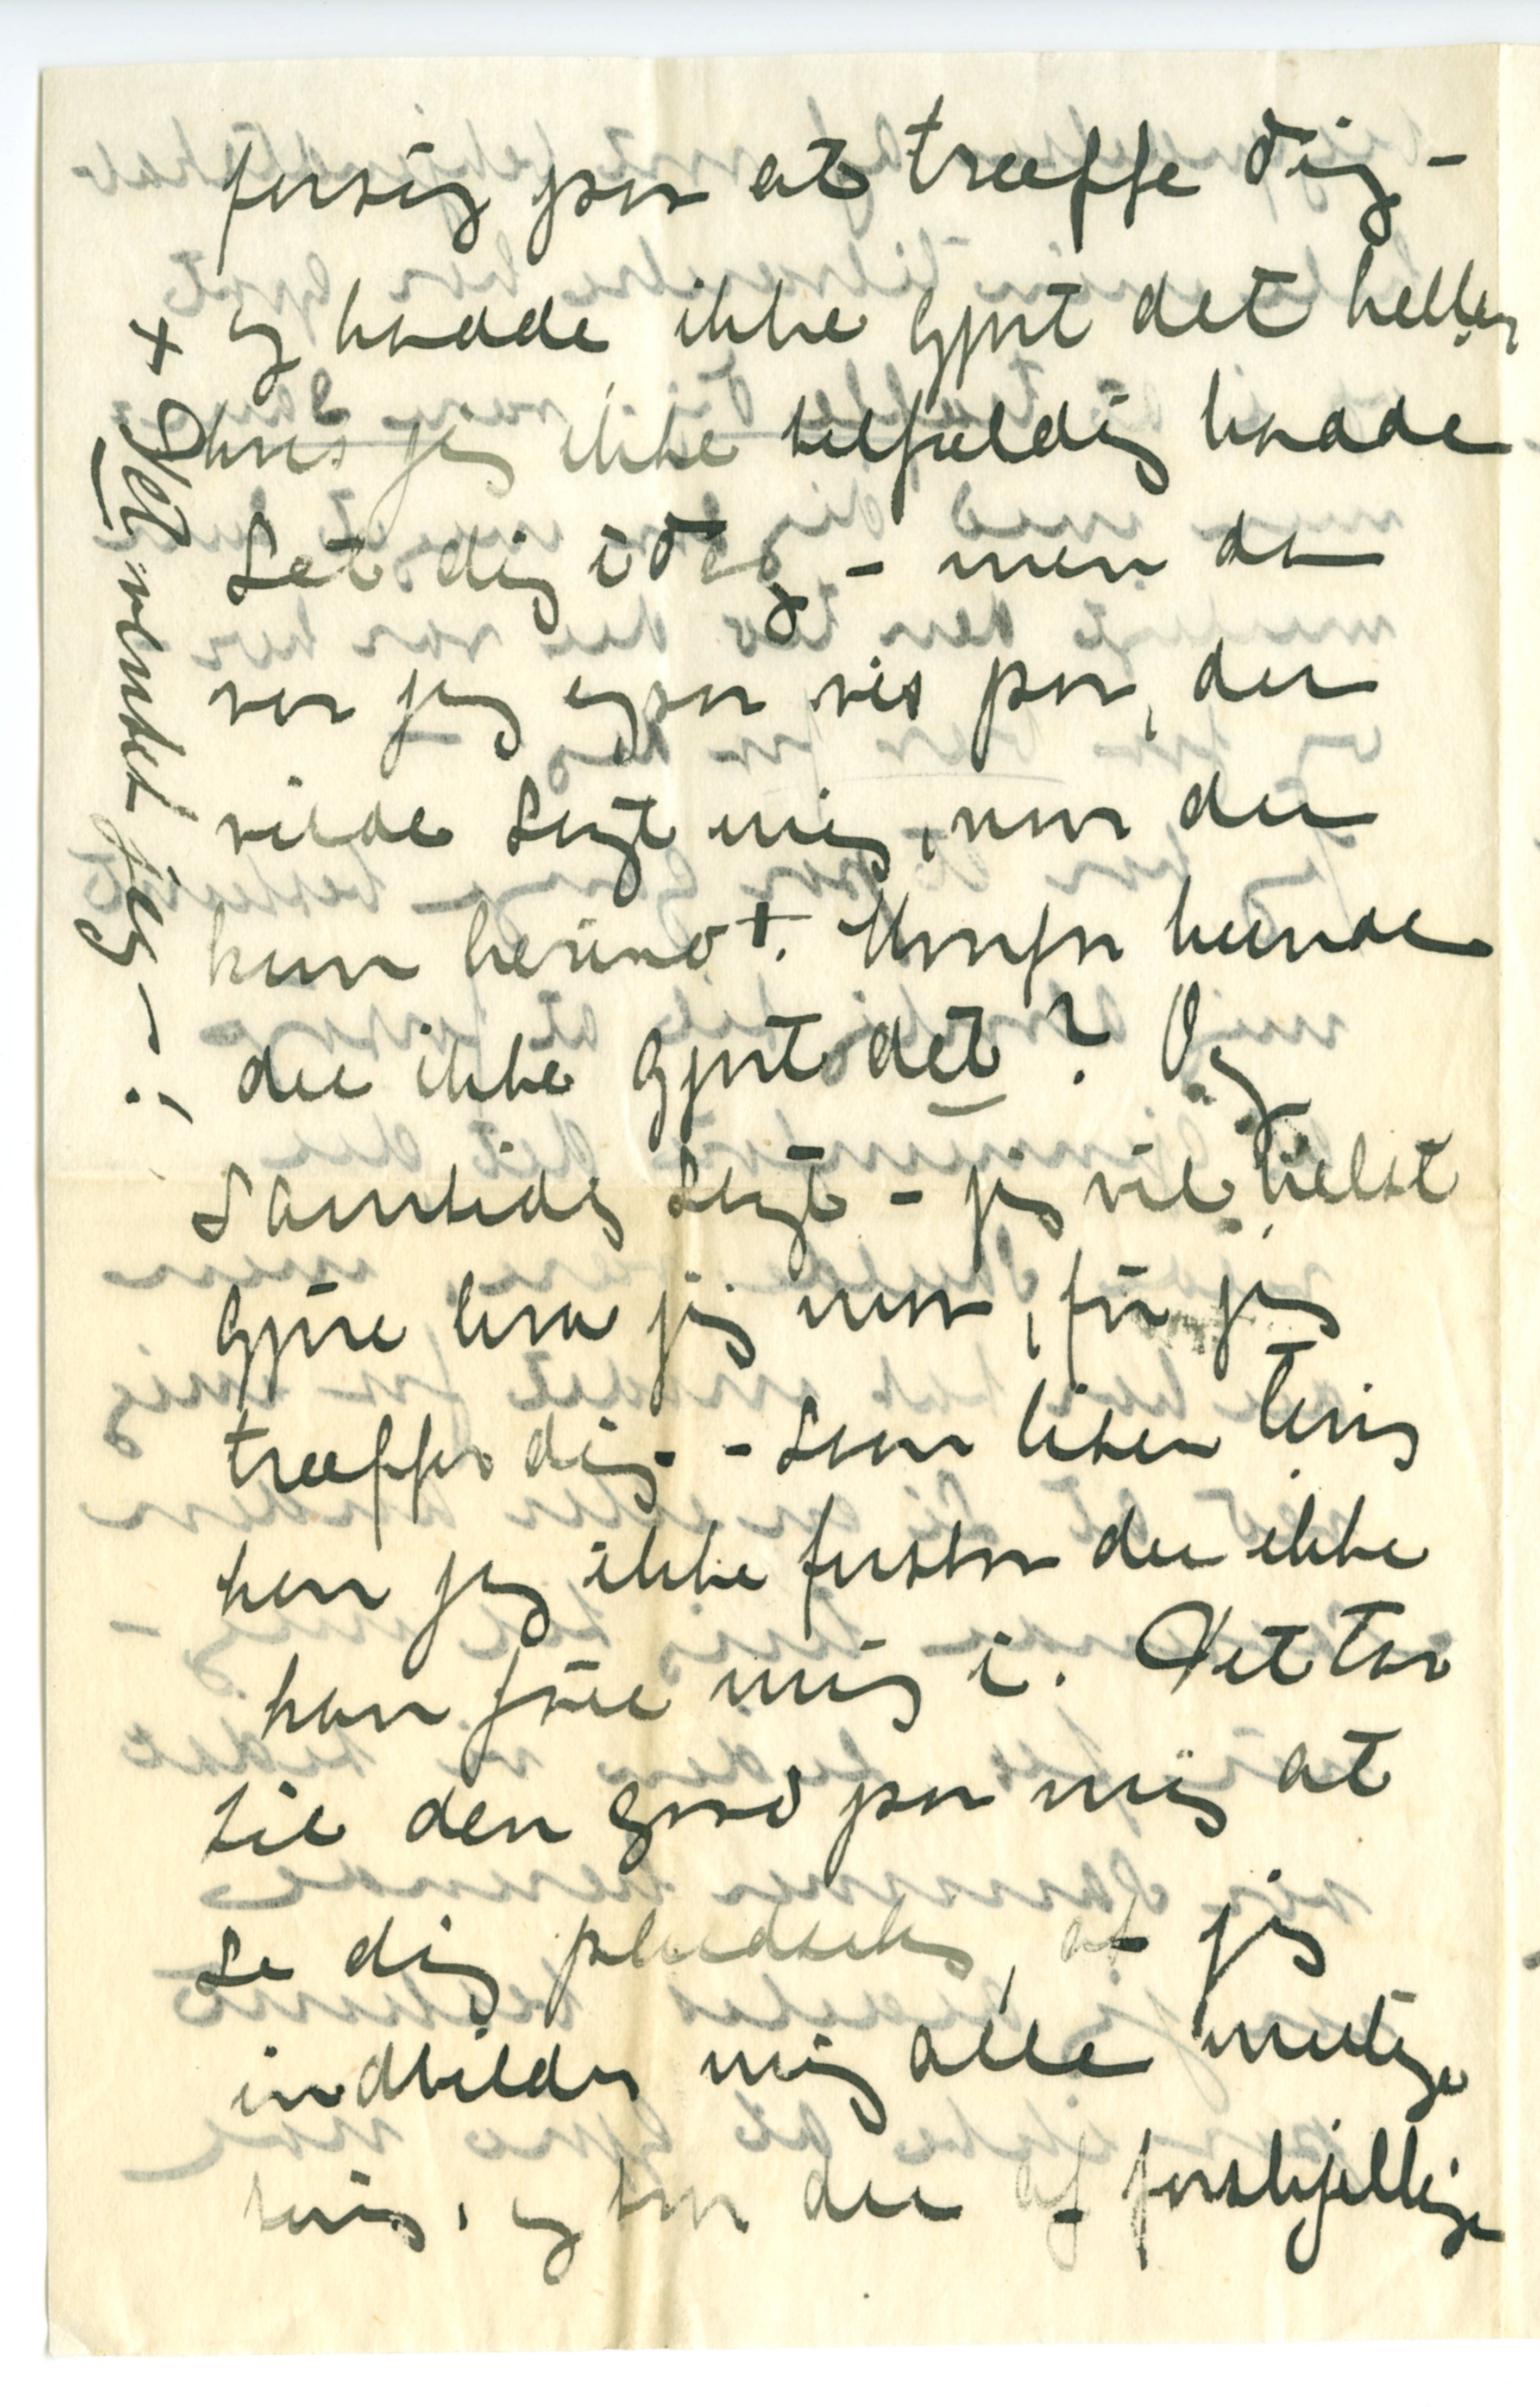 forsøg paa at træffe dig –
og havde ikke gjort det heller,
hvis jeg ikke tilfældig havde
set dig idag – men da
var jeg ogsaa vis paa, du
vilde søgt mig, naar du
kom herind +. Hvorfor kunde
du ikke gjort det? Og
samtidig sagt – jeg vil helst
gjøre hvad jeg maa, før jeg
træffer dig. – Saan liten ting
kan jeg ikke forstaa du ikke
kan føie mig i. Det tar
til den grad paa mig at
se dig pludselig, at jeg
indbilder mig alle mulige
ting, og har du af forskjellige
+ Det ventet jeg – ;